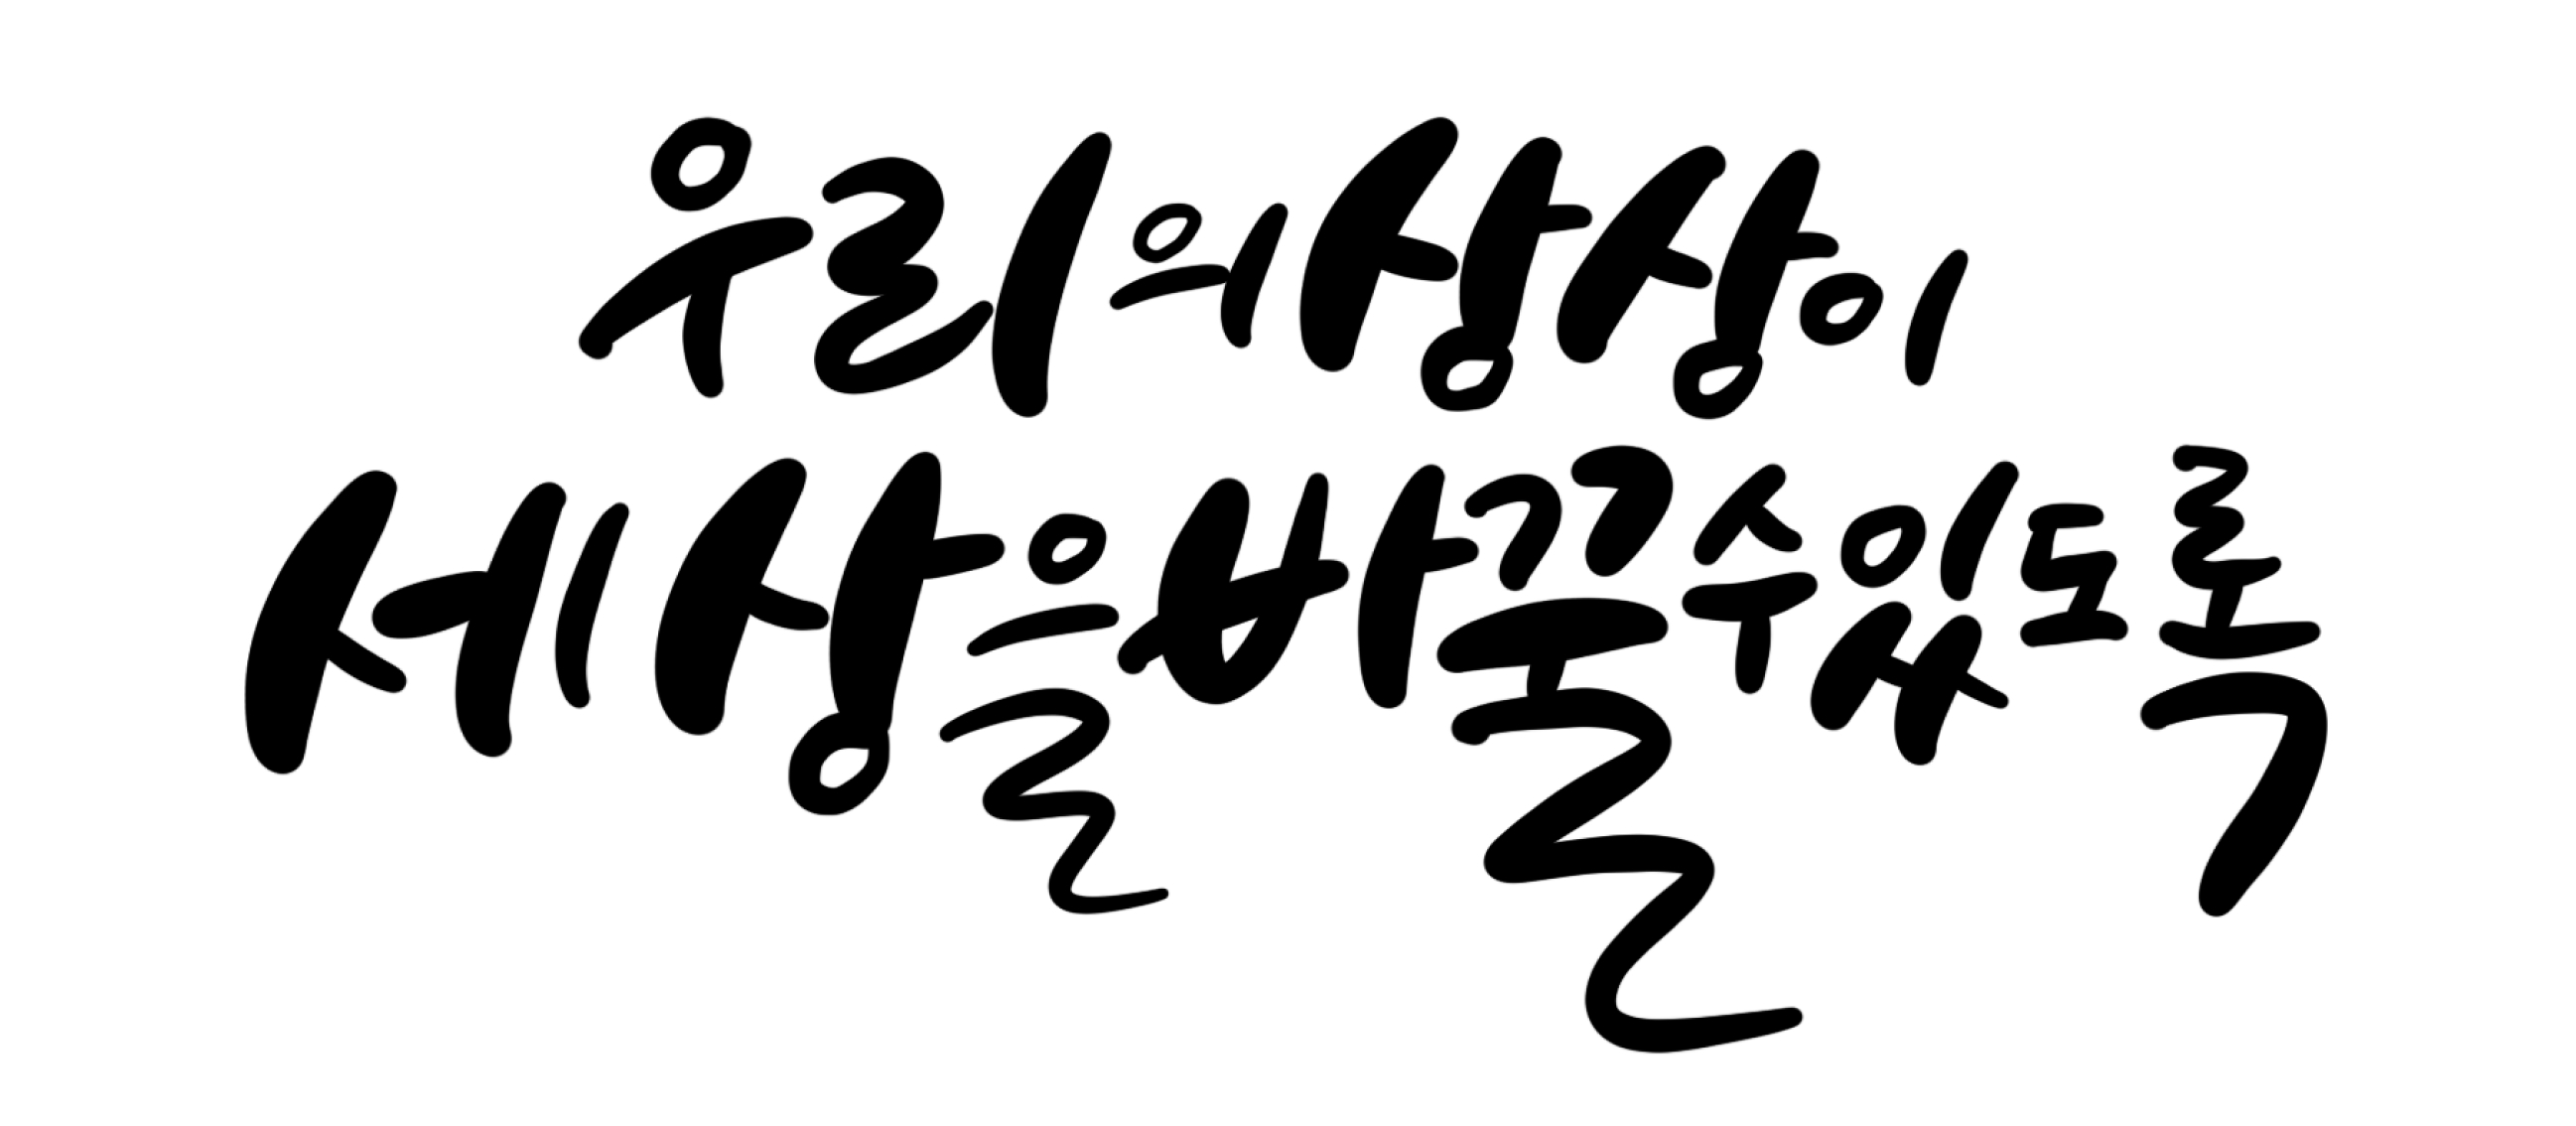 우리의 상상이
세상을 바꿀 수 있도록